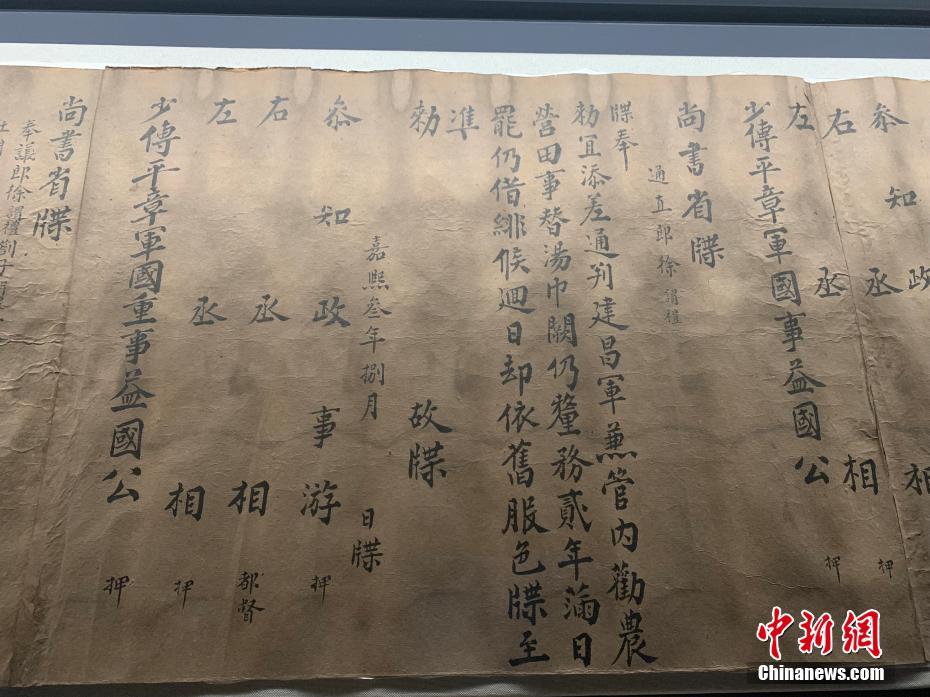 叅知政
右丞相 押
左丞相 押
少傅平章軍國事益國公
尚書省牒
通直郎徐謂禮
牒奉
勑宜添差通判建昌軍兼管內勸農
營田事替湯巾闕仍釐務貳年滿日
罷仍借緋候廻日却依舊服色牒至
準
勑故牒
嘉熙叁年捌月日牒
叅知政事游 押
右丞相 都督
左丞相 押
少傅平章軍國重事益國公 押
尚書省牒
奉議郎徐謂禮
中新網
Chinanews.com